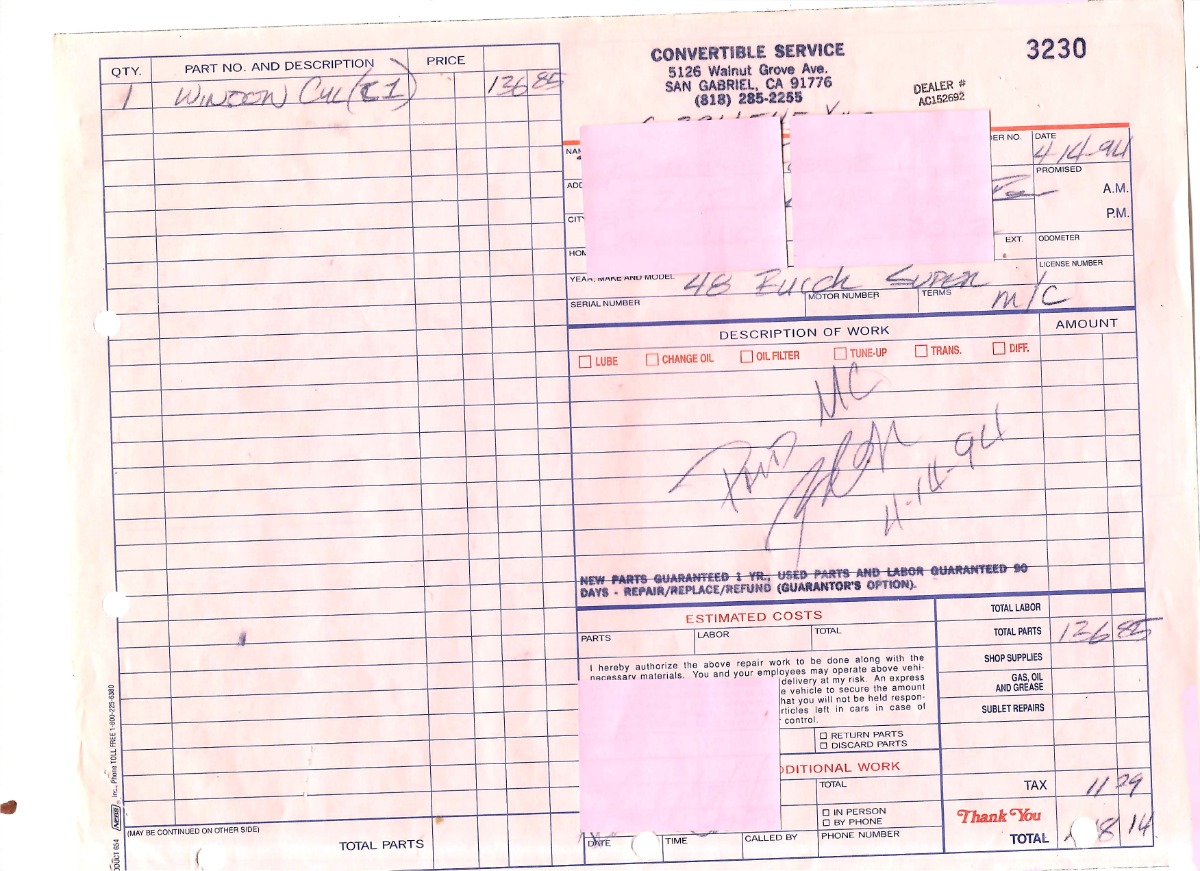 CONVERTIBLE SERVICE
5126 Walnut Grove Ave.
SAN GABRIEL, CA 91776
(818) 285-2255
3230
DEALER #
AC152692
QTY. PART NO. AND DESCRIPTION PRICE
1 WINDOW CYL 136 85
DATE
4-14-94
PROMISED
A.M.
P.M.
EXT. ODOMETER
LICENSE NUMBER
YEAR, MAKE AND MODEL 48 Buick Super
SERIAL NUMBER MOTOR NUMBER TERMS M/C
DESCRIPTION OF WORK AMOUNT
LUBE CHANGE OIL OIL FILTER TUNE-UP TRANS. DIFF.
MC
PAID
4-14-94
NEW PARTS GUARANTEED 1 YR., USED PARTS AND LABOR GUARANTEED 90
DAYS - REPAIR/REPLACE/REFUND (GUARANTOR'S OPTION).
ESTIMATED COSTS
PARTS LABOR TOTAL
I hereby authorize the above repair work to be done along with the
necessary materials. You and your employees may operate above vehi-
delivery at my risk. An express
vehicle to secure the amount
that you will not be held respon-
articles left in cars in case of
control.
RETURN PARTS
DISCARD PARTS
ADDITIONAL WORK
TOTAL
IN PERSON
BY PHONE
DATE TIME CALLED BY PHONE NUMBER
TOTAL LABOR
TOTAL PARTS 136 85
SHOP SUPPLIES
GAS, OIL
AND GREASE
SUBLET REPAIRS
TAX 11 29
Thank You
TOTAL 14
(MAY BE CONTINUED ON OTHER SIDE)
TOTAL PARTS
Inc., Phone TOLL FREE 1-800-225-6380